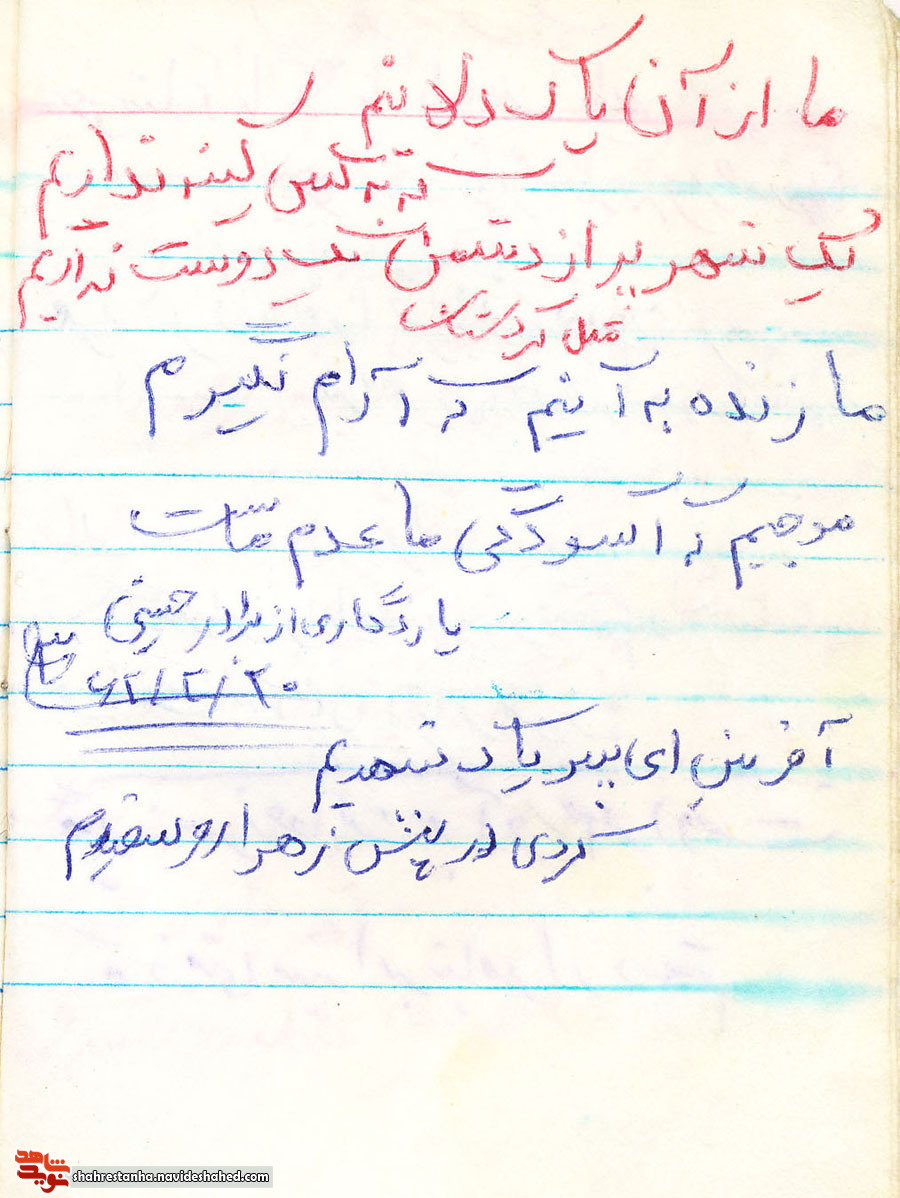 ما از آن پاک دلانیم
که به کس کینه نداریم
یک شهر پر از دشمن یک دوست نداریم
مثل کردستان
ما زنده به آنیم که آرام نگیرم
موجیم که آسودگی ما عدم ماست
یادگاری از برادر حسینی
۶۲/۲/۳۰
آفرین ای پسر پاک شهیدم
کردی در پیش زهرا رو سفیدم
نوید شاهد
shahrestanha.navideshahed.com